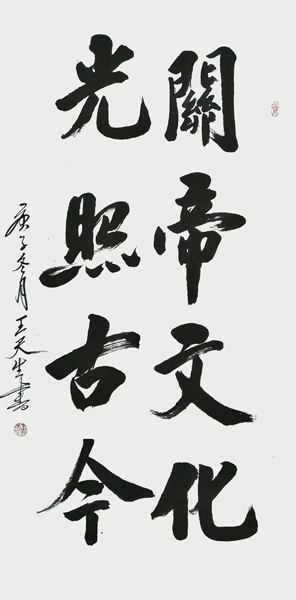 關帝文化
光照古今
庚子冬月王天生書